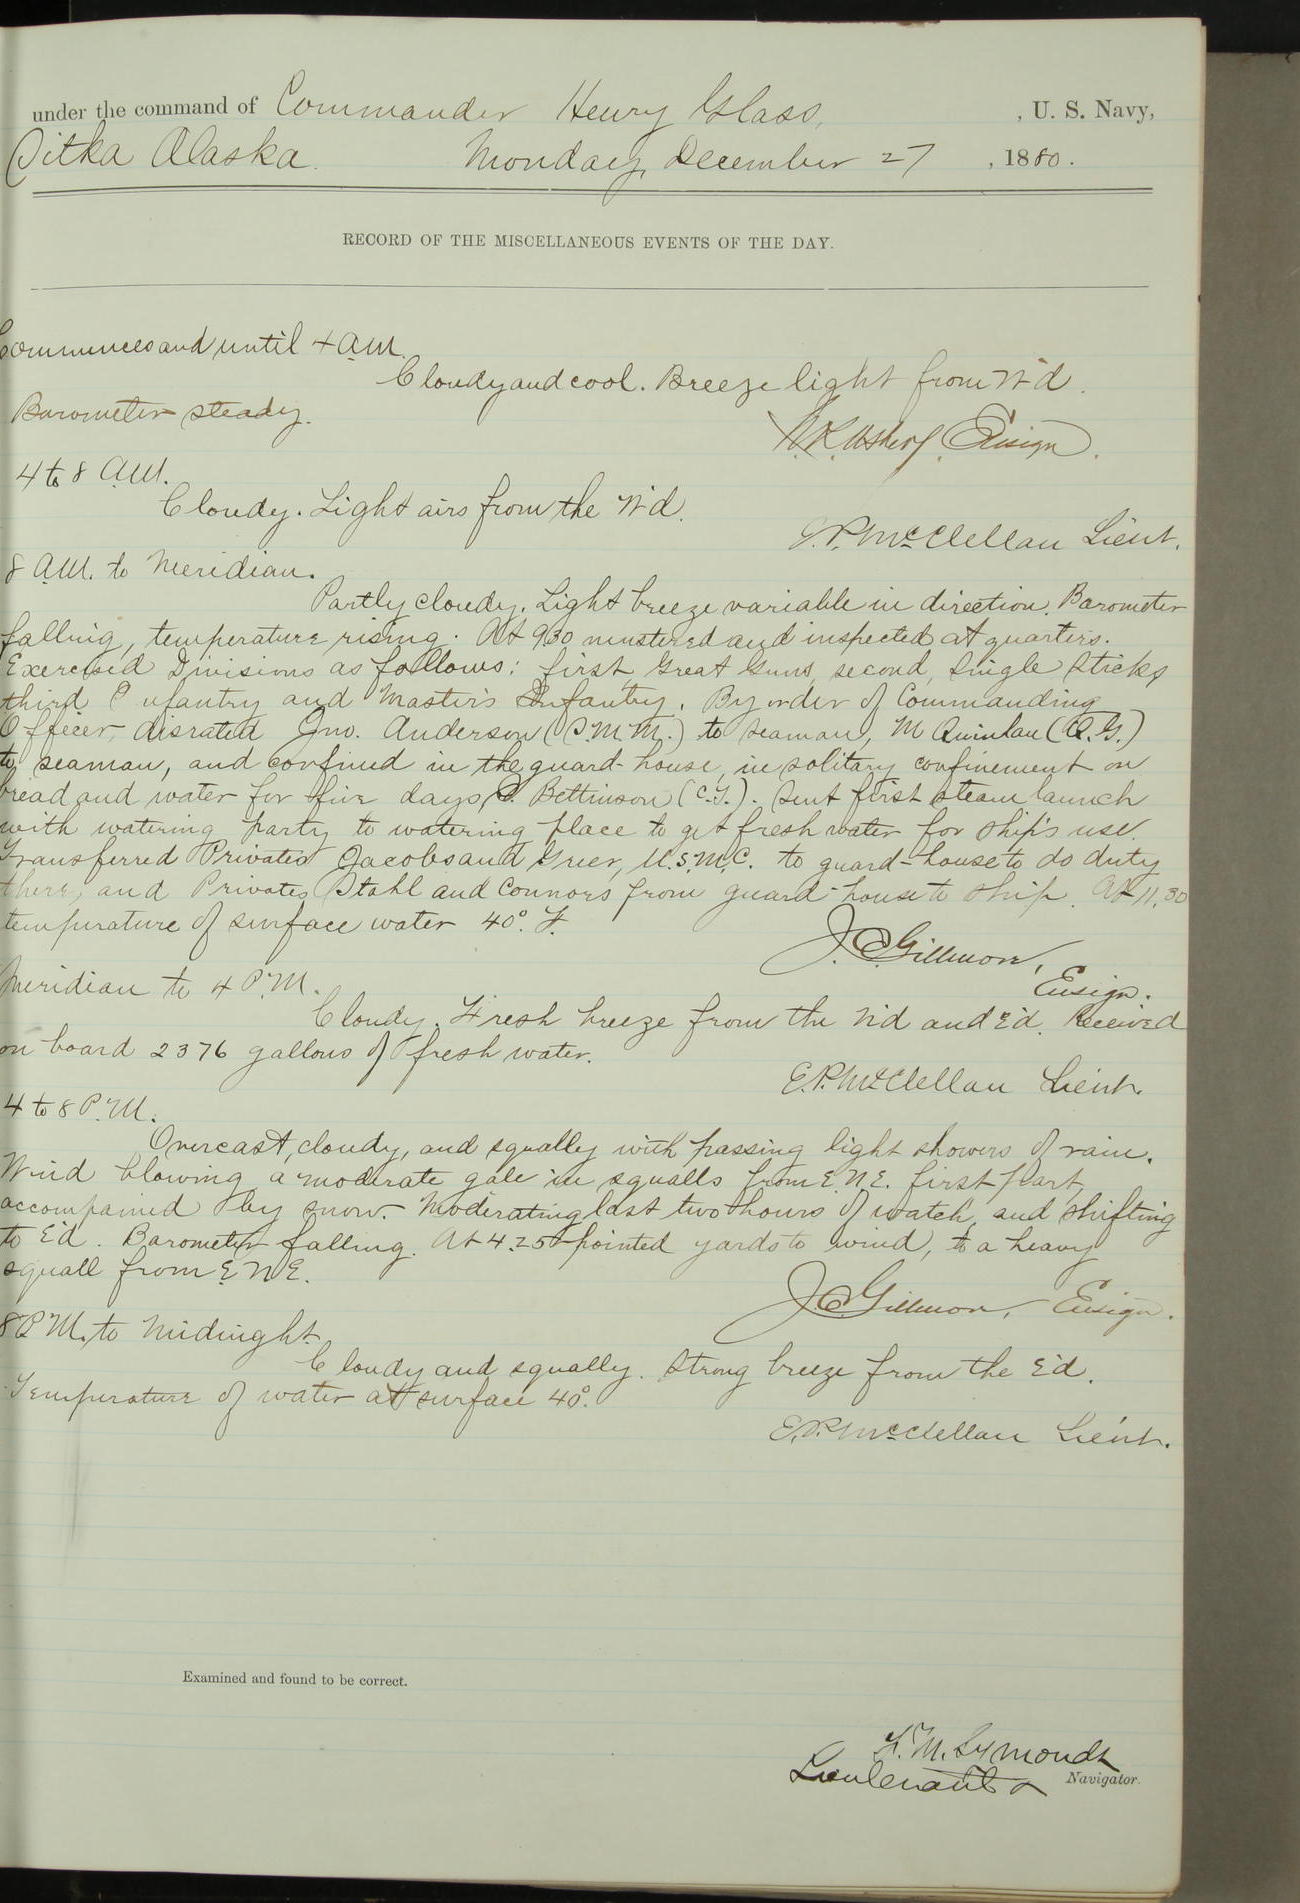 under the command of Commander Henry Glass, , U. S. Navy,
Sitka Alaska. Monday, December 27 , 1880.
RECORD OF THE MISCELLANEOUS EVENTS OF THE DAY.
Commences and until 4 A.M.
Cloudy and cool. Breeze light from N'd.
Barometer steady.
N.R. Usher, Ensign.
4 to 8 A.M.
Cloudy. Light airs from the N'd.
E.P. McClellan Lieut.
8 A.M. to Meridian.
Partly cloudy. Light breeze variable in direction. Barometer
falling, temperature rising. At 9.30 mustered and inspected at quarters.
Exercised Divisions as follows: first Great Guns, second, Single Sticks
third Infantry and Master's Infantry. By order of Commanding
Officer, disrated Jno. Anderson (S.M.M.) to seaman, M Quinlan (Q.G.)
to seaman, and confined in the guard-house, in solitary confinement on
bread and water for five days Bettinson (C.F.). Sent first steam launch
with watering party to watering place to get fresh water for ship's use.
Transferred Privates Jacobs and Greer, U.S.M.C. to guard-house to do duty
there, and Privates Stahl and Connors from guard-house to ship. At 11.30
temperature of surface water 40°. F.
J.C. Gillmore,
Ensign.
Meridian to 4 P.M.
Cloudy. Fresh breeze from the N'd and E'd. Received
on board 2376 gallons of fresh water.
E.P. McClellan Lieut.
4 to 8 P.M.
Overcast, cloudy, and squally with passing light showers of rain.
Wind blowing a moderate gale in squalls from E.N.E. first part,
accompanied by snow. Moderating last two hours of watch, and shifting
to E'd. Barometer falling. At 4.25 pointed yards to wind, to a heavy
squall from E.N.E.
J.C. Gillmore, Ensign.
8 P.M. to Midnight.
Cloudy and squally. Strong breeze from the E'd.
Temperature of water at surface 40°.
E.P. McClellan Lieut.
Examined and found to be correct.
F. M. Symonds
Lieutenant &
Navigator.